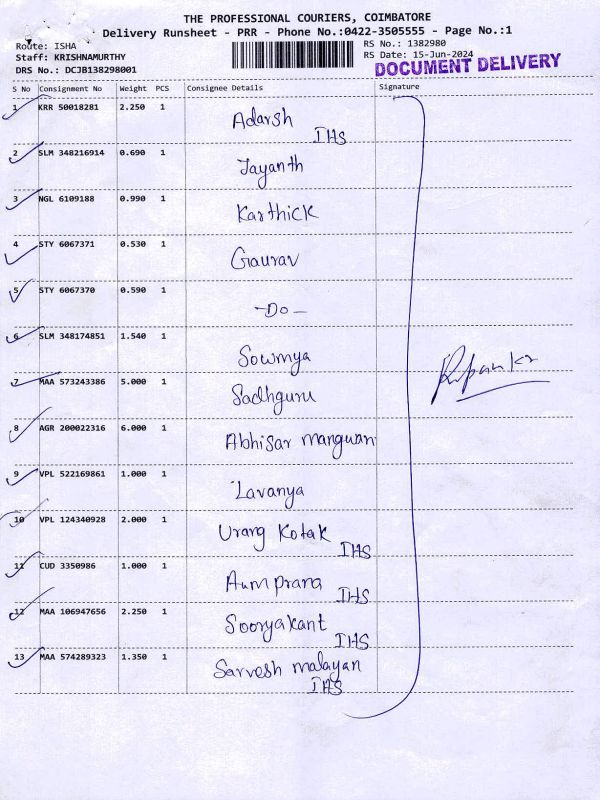 THE PROFESSIONAL COURIERS, COIMBATORE
Delivery Runsheet - PRR - Phone No.:0422-3505555 - Page No.:1
Route: ISHA
Staff: KRISHNAMURTHY
DRS No.: DCJB138298001
RS No.: 1382980
RS Date: 15-Jun-2024
DOCUMENT DELIVERY
S No Consignment No Weight PCS Consignee Details Signature
1 KRR 50018281 2.250 1 Adarsh
IHS
2 SLM 348216914 0.690 1 Jayanth
3 NGL 6109188 0.990 1 Karthick
4 STY 6067371 0.530 1 Gaurav
5 STY 6067370 0.590 1 -Do-
6 SLM 348174851 1.540 1 Sowmya
7 MAA 573243386 5.000 1 Sadhguru
8 AGR 200022316 6.000 1 Abhisar manguan
9 VPL 522169861 1.000 1 Lavanya
10 VPL 124340928 2.000 1 Urang Kotak
IHS
11 CUD 3350986 1.000 1 Aum prana
IHS
12 MAA 106947656 2.250 1 Sooryakant
IHS
13 MAA 574289323 1.350 1 Sarvesh malayan
IHS